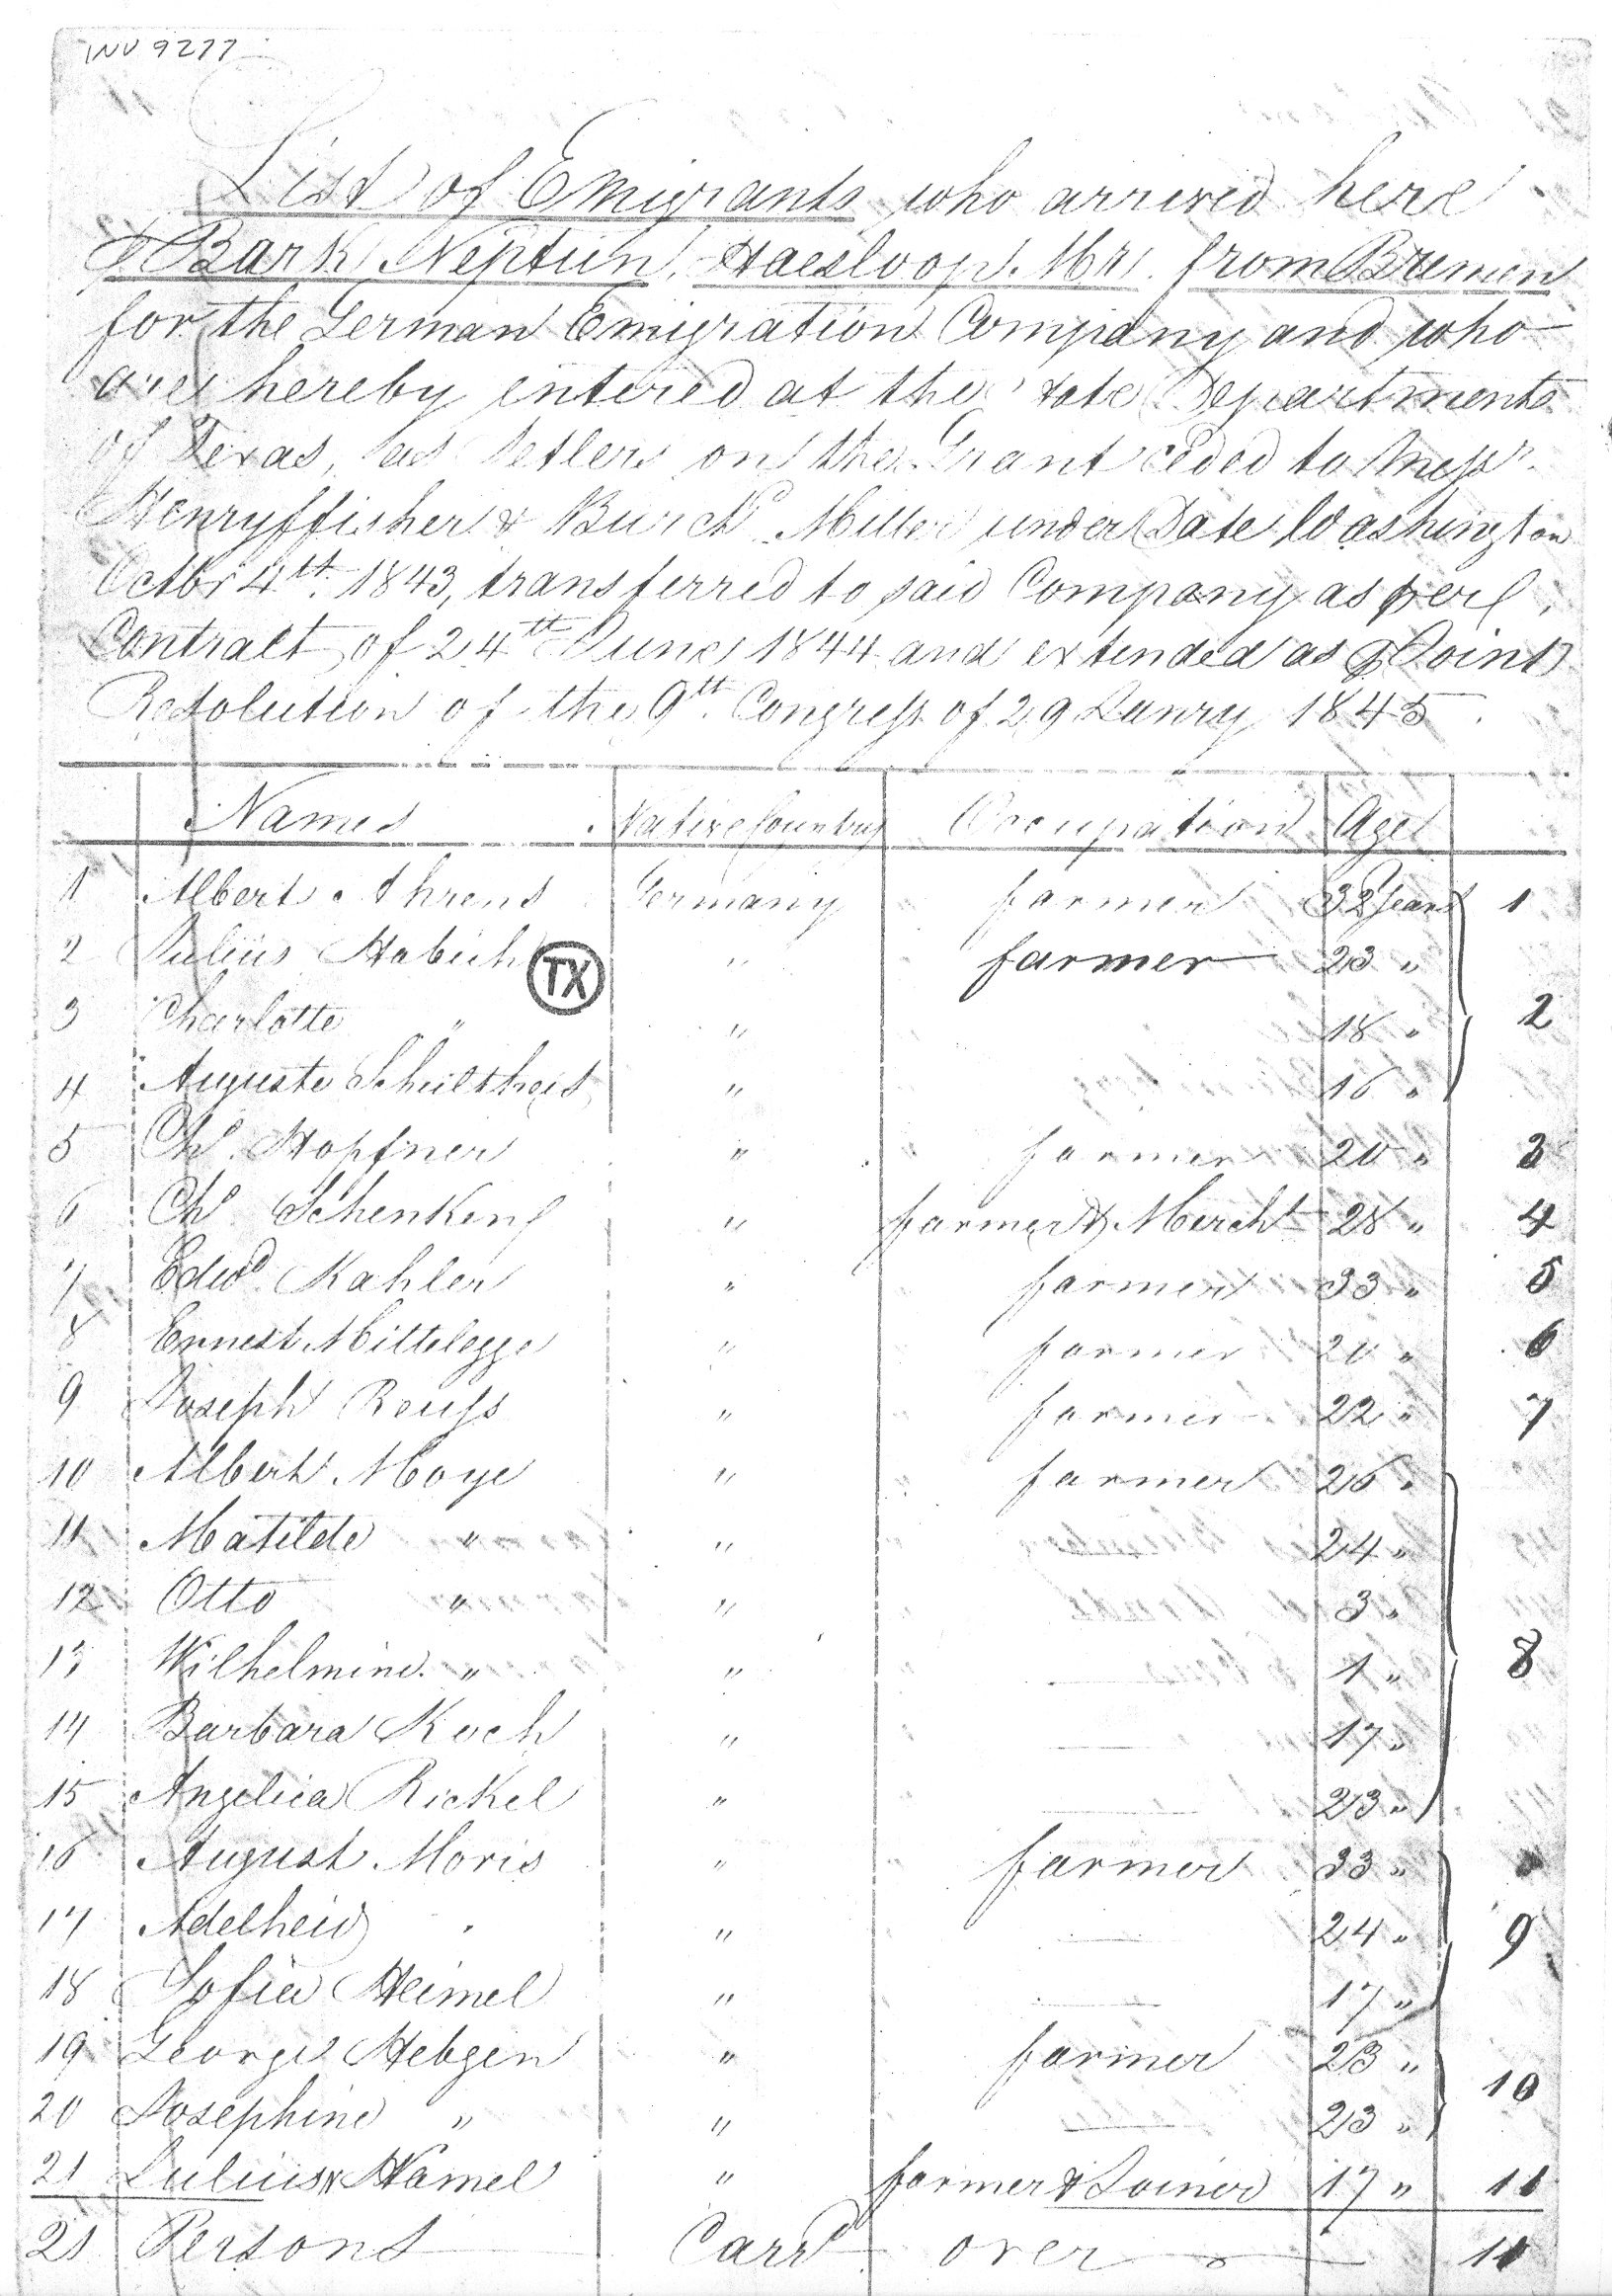 INV 9277
List of Emigrants who arrived here
p Bark Neptun, Haesloop Mr. from Bremen
for the German Emigration Company and who
are hereby entered at the State Departments
of Texas, as Setlers on the Grant ceded to Messr.
Henry ffisher & Burchd Miller under Date Washington
Octbr 4th. 1843, transferred to said Company as per
Contract of 24th June 1844 and extended as p Joint
Resolution of the 9th Congress of 29 Janry 1845.
Names Native Country Occupation Age
1 Albert Ahrens Germany farmer 32 Years 1
2 Julius Habich " farmer 23 "
TX
3 Charlotte " " 18 " 2
4 Auguste Schultheis " 16 "
5 Chs. Hopfner " farmer 20 " 3
6 Chs Schenking " farmer & Mercht 28 " 4
7 Edwd. Kahler " farmer 33 " 5
8 Ernest Mittelegge " farmer 20 " 6
9 Joseph Reuss " farmer 22 " 7
10 Albert Moye " farmer 26 "
11 Matilde " " 24 "
12 Otto " " 3 "
13 Wilhelmine " " 1 " 8
14 Barbara Koch " 17 "
15 Angelica Rickel " 23 "
16 August Moris " farmer 33 "
17 Adelheid " " 24 " 9
18 Sofia Heimel " 17 "
19 George Hebgen " farmer 23 " 10
20 Josephine " " 23 "
21 Julius Hamel " farmer & Joiner 17 " 11
21 Persons Carrd over 11